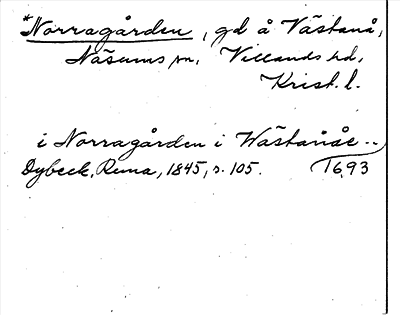 *Norragården, gd å Västanå,
Näsums sn, Villands hd,
Krist. l.
i Norragården i Wästanåe..
Dybeck, Runa, 1845, s. 105. 1693